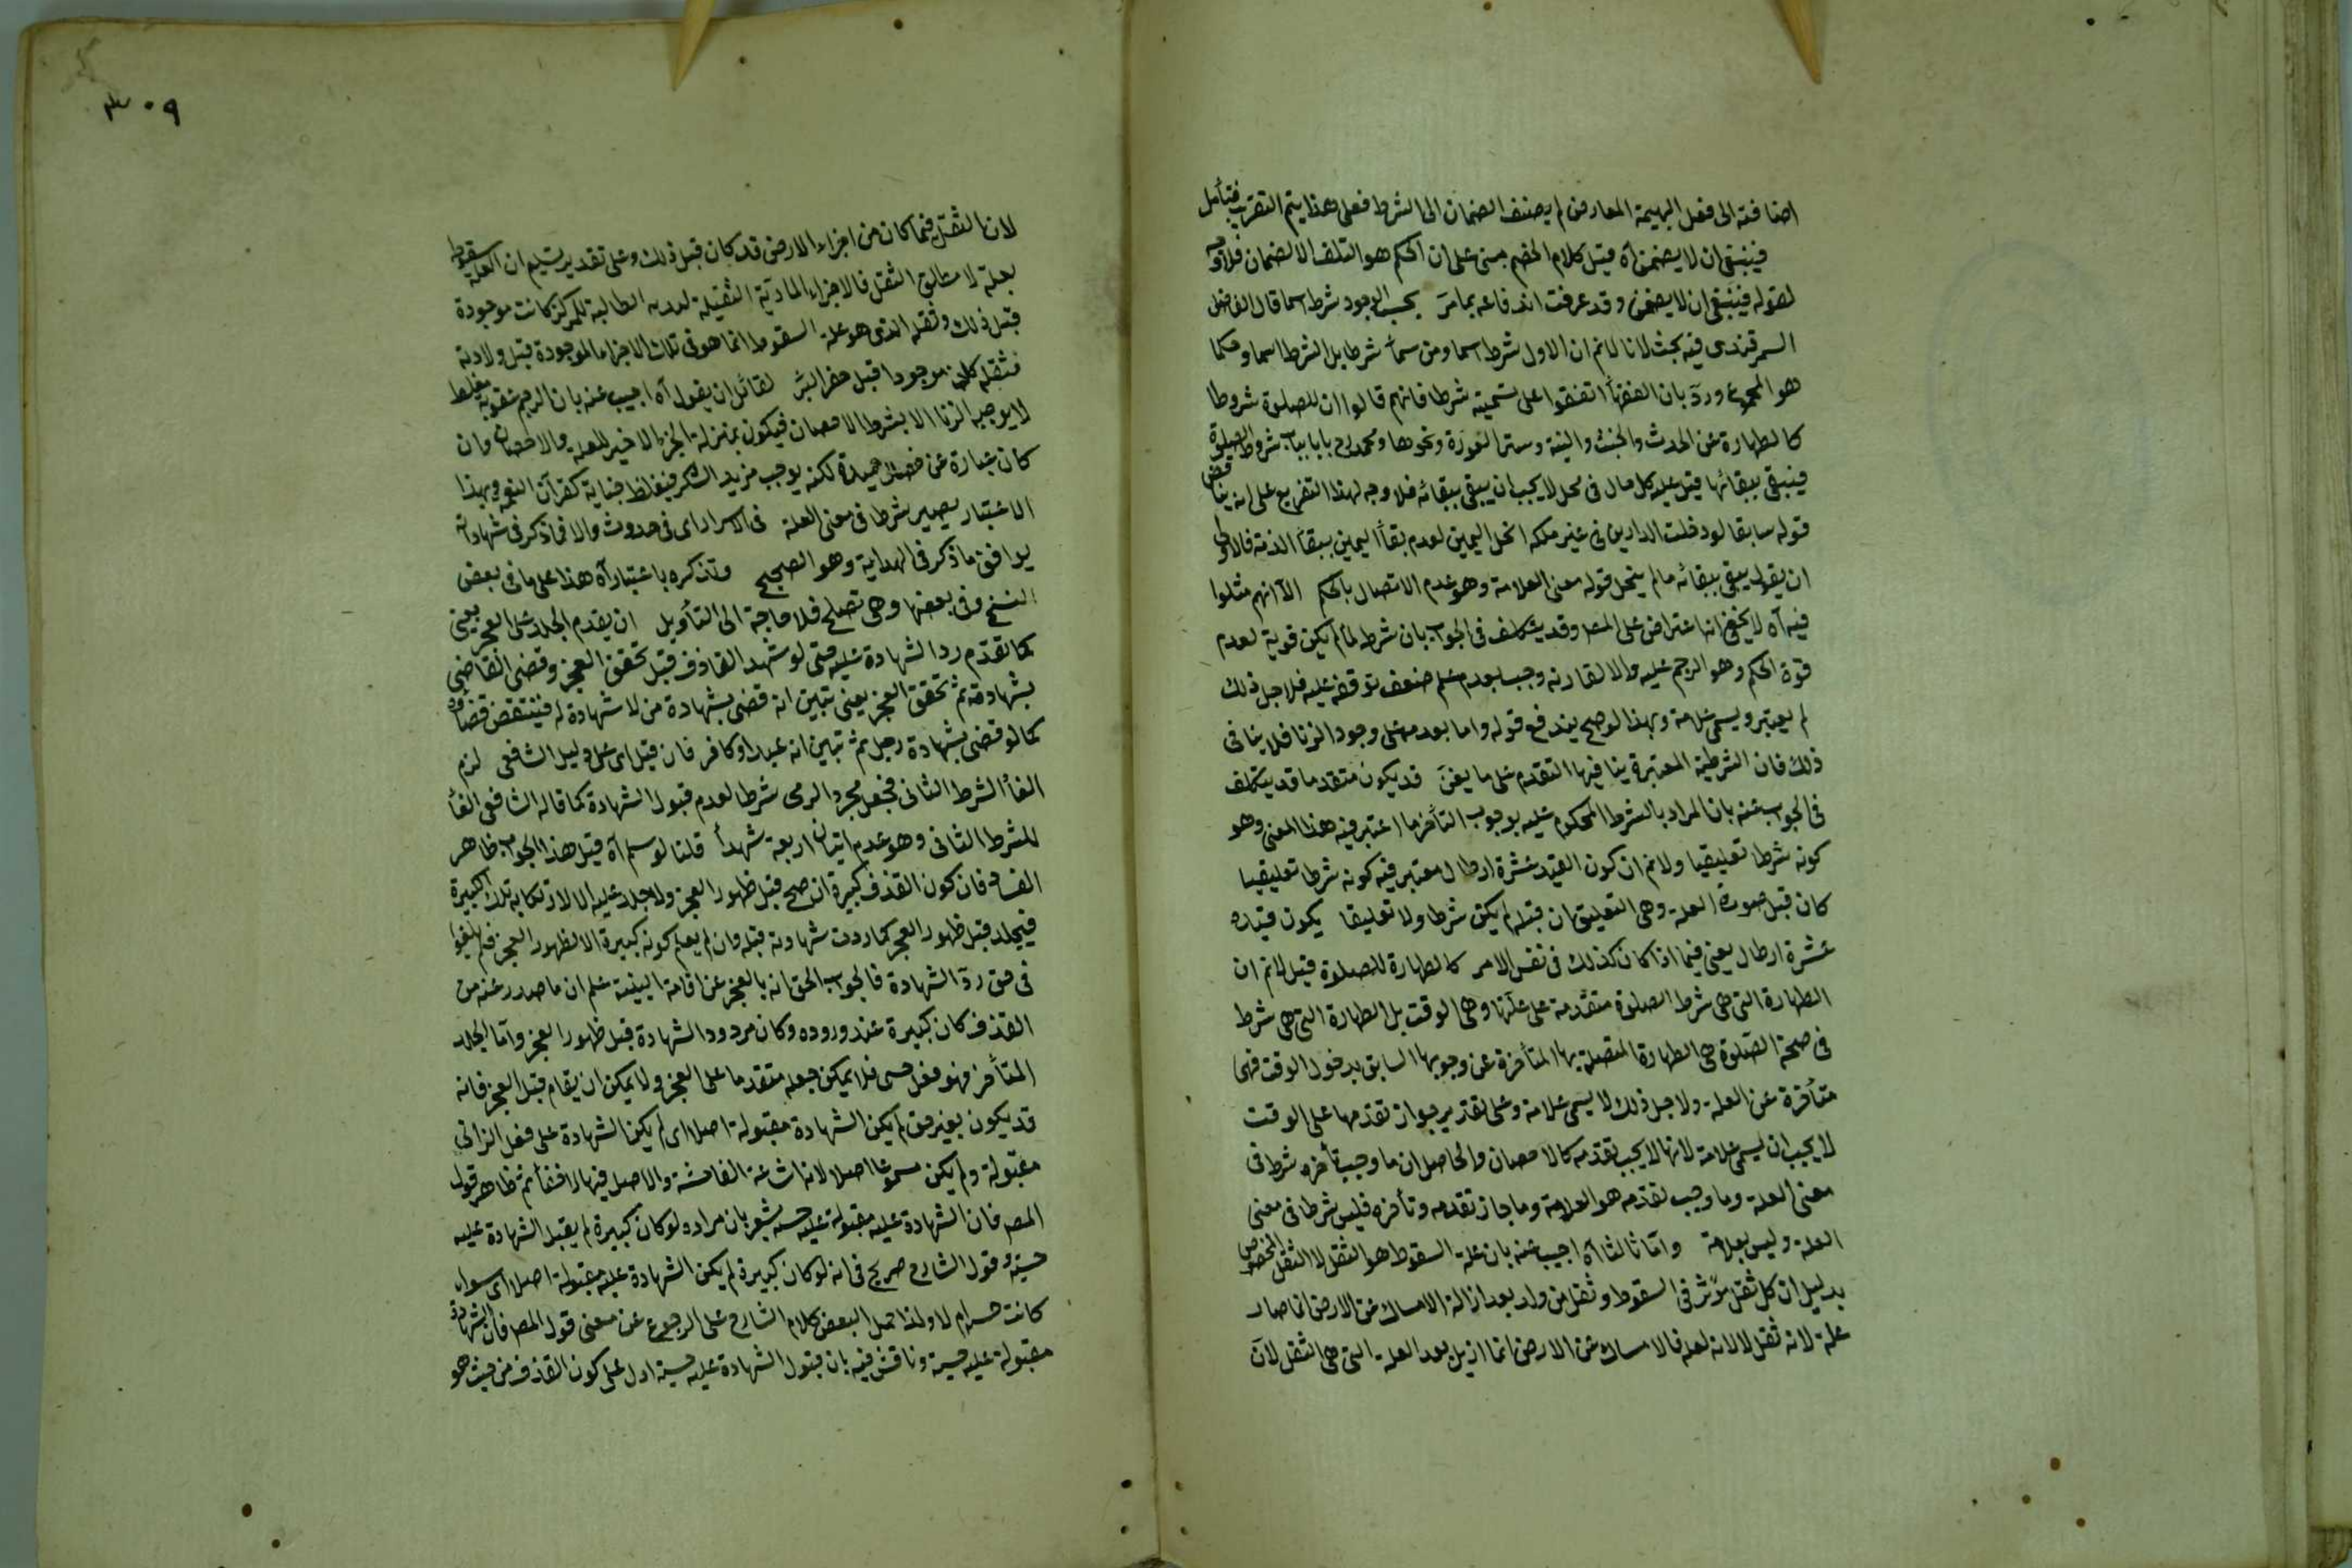 اضافته الى فعل البهيمة المعارض لم يضف الضمان الى الشرط فعلى هذا يتم التقريب فتأمل
فينبغى ان لا يضمن آه قيل كلام الخصم مبنى على ان الحكم هو التلف لا الضمان فلا وجه
لقوله فينبغى ان لا يضمن وقد عرفت اندفاعه بما مرّ بحسب الوجود شرط اسما قال الفاضل
السمرقندى فيه بحث لانا لانم ان الاول شرط اسما ومن سماه شرطا بل الشرط اسما وحكما
هو المجموع وردّ بان الفقهأ اتفقوا على تسميته شرطا فانهم قالوا ان للصلوة شروطا
كالطهارة عن الحدث والخبث والنية وستر العورة ونحوها ومحمد رح بابا بباب شروط الصلوة
فينبغى ببقائها قيل عليه كل حال فى محل لا يجب ان يبقى ببقائه فلا وجه لهذا التفريع على انه يناقض
قوله سابقا لو دخلت الدارين فى غير ملكه انحل اليمين لعدم بقأ اليمين ببقأ الذمة فالاولى
ان يقول يبقى ببقائه ما لم ينحل قوله معنى العلامة وهو عدم الاتصال بالحكم الا انهم مثلوا
فيه آه لا يخفى انه اعتراض على المصـ وقد يتكلف فى الجواب بان شرط لما لم يكن قوية لعدم
قوة الحكم وهو الرجم عليه والا لقارنه وجب بعدم علم ضعف توقفه عليه فلاجل ذلك
لم يعتبر ويسمى علامة وبهذا لوصح يندفع قوله واما بعدمه على وجود الزنا فلا ينافى
ذلك فان الشرطية المعتبرة ينافيها التقدم على ما يفنَ قد يكون متقدما قد يتكلف
فى الجواب عنه بان المراد بالشرط المحكوم عليه بوجوب التأخر ما اعتبر فيه هذا المعنى وهو
كونه شرطا تعليقيا ولانم ان كون القيد عشرة ارطال معتبر فيه كونه شرطا تعليقيا
كان قبل صورة العلة وهى التعليق ان قبله لم يكن شرطا ولا تعليقا يكون قيده
عشرة ارطال يعنى فيما اذا كان كذلك فى نفس الامر كالطهارة للصلوة قيل لانم ان
الطهارة التى هى شرط الصلوة متقدمة على علتها وهى الوقت بل الطهارة التى هى شرط
فى صحة الصلوة هى الطهارة المتصلة بها المتأخرة عن وجوبها السابق بدخول الوقت فهى
متأخرة عن العلة ولاجل ذلك لا يسمى علامة وعلى تقدير جواز تقدمها على الوقت
لا يجب ان يسمى علامة لانها لا يجب تقدمه كالاحصان والحاصل ان ما وجب تأخره شرط فى
معنى العلة وما وجب تقدمه هو العلامة وما جاز تقدمه وتأخره فليس شرطا فى معنى
العلة وليس بعلامة واما ثالثا آه اجيب عنه بان علة السقوط هو الثقل لا الثقل المخصوص
بدليل ان كل ثقل مؤثر فى السقوط وثقل من ولد بعد ازالة الامساك عن الارض انما صار
علة لانه ثقل لا لانه لعله فالامساك عن الارض انما ازيل بعد العلة التى هى الثقل لان
٣٠٩
لان الثقل فيما كان من اجزاء الارض قد كان قبل ذلك وعلى تقدير تسليم ان العلة سقوط
بعلة لا مطلق الثقل فالاجزاء المادية الثقيلة لبدنه الطالبة للمركز كانت موجودة
قبل ذلك وثقله الذى هو علة السقوط انما هو فى تلك الاجزاء الموجودة قبل ولادته
فثقله كان موجودا قبل حفر البئر لقائل ان يقول آه اجيب عنه بان الرجم عقوبة مغلظ
لا يوجبه الزنا الا بشرط الاحصان فيكون بمنزلة الجزء الاخير للعلة والاحصان وان
كان عبارة عن خصال حميدة لكنه يوجب مزيد الشكر فيغلظ جناية كفران النعم وبهذا
الاعتبار يصير شرطا فى معنى العلة فى الاسرار اى فى حدوث والا فما ذكر فى شهادته
يوافق ما ذكر فى الهداية وهو الصحيح وتذكره باعتبار آه هذا على ما فى بعض
النسخ وفى بعضها وهى تصلح فلا حاجة الى التأويل ان يقدم الجلد على العجز يعنى
كما تقدم رد الشهادة عليه حتى لو شهد القاذف قبل تحقق العجز وقضى القاضى
بشهادته ثم تحقق العجز يعنى تبين انه قضى بشهادة من لا شهادة له فينتقض قضاؤه
كما لو قضى بشهادة رجل ثم تبين انه عبد او كافر فان قيل اى على دليل الشافعى لزم
الغأ الشرط الثانى فجعل مجرد الرمى شرطا لعدم قبول الشهادة كما قاله الشافعى الغأ
للشرط الثانى وهو عدم اتيان اربعة شهدأ قلنا لو سلم آه قيل هذا الجواب ظاهر
الفساد فان كون القذف كبيرة ان صح قبل ظهور العجز ولا جلد عليه الا لارتكابه تلك الكبيرة
فيجلد قبل ظهور العجز كما ردت شهادته قبله وان لم يعلم كونه كبيرة الا لظهور العجز فلم يلغوا
فى حق ردّ الشهادة فالجواب الحق انه بالعجز عن اقامة البينة علم ان ما صدر عنه من
القذف كان كبيرة عند وروده وكان مردود الشهادة قبل ظهور العجز واما الجلد
المتأخر فهو فعل حسى فلا يمكن جعله متقدما على العجز ولا يمكن ان يقام قبل العجز فانه
قد يكون بغير حق لم يكن الشهادة مقبولة اصلا اى لم يكن الشهادة على فعل الزانى
مقبولة ولم يكن مسموعا اصلا لانه اشاعة الفاحشة والاصل فيها الاخفأ ثم ظاهر قول
المصـ فان الشهادة عليه مقبولة عليه حسبة يشعر بان مراده لو كان كبيرة لم يقبل الشهادة عليه
حسبة وقول الشارح صريح فى انه لو كان كبيرة لم يكن الشهادة عليه مقبولة اصلا اى سواء
كانت حسبة ام لا ولذا حمل البعض كلام الشارح على الرجوع عن معنى قول المصـ فان الشهادة
مقبولة عليه حسبة وناقش فيه بان قبول الشهادة عليه حسبة ادل على كون القذف من حيث هو